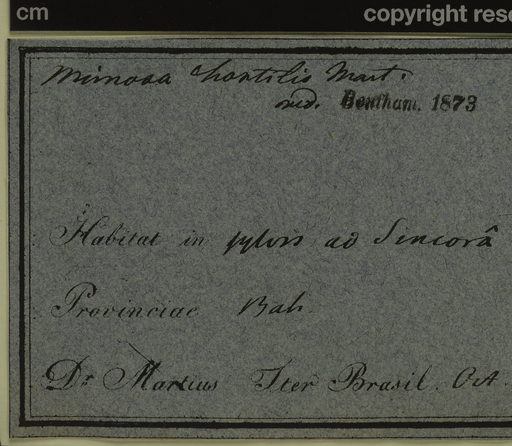 cm copyright rese
Mimosa hostilis Mart.
vid. Bentham. 1873
Habitat in sylvis ad Sincorâ
Provinciae Bah.
Dr. Martius Iter Brasil. Oct.